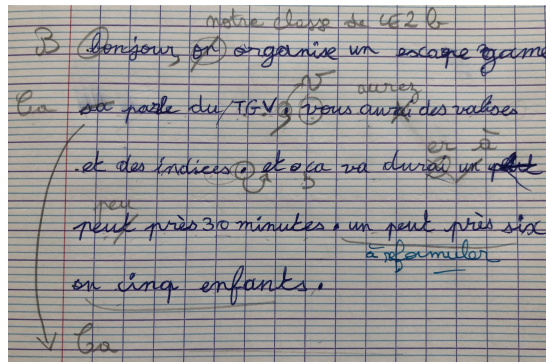 notre classe de CE2 b
B bonjour, on organise un escape game
Ca sa parle du T.G.V. V vous aurai des valises
aurez
et des indices. et ça va durai un
er à
peu
peut près 30 minutes. un peut près six
à reformuler
on cinq enfants.
Ca